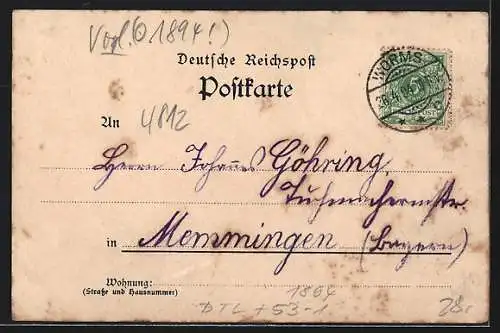 Vorl. (O 1894!)
Deutsche Reichspost
Postkarte
WORMS
An
4812
Herrn Johannes Göhring,
Tuchmachermstr.
in Memmingen (Bayern)
Wohnung:
(Straße und Hausnummer)
1864
DTL + 53-1